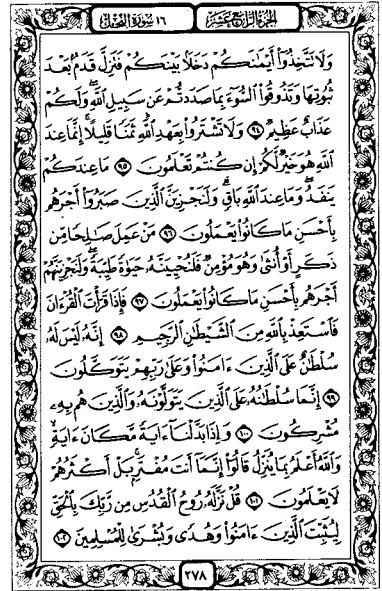 الجزء الرابع عشر
١٦ سورة النحل
وَلَا تَتَّخِذُوٓا۟ أَيْمَٰنَكُمْ دَخَلًۢا بَيْنَكُمْ فَتَزِلَّ قَدَمٌۢ بَعْدَ
ثُبُوتِهَا وَتَذُوقُوا۟ ٱلسُّوٓءَ بِمَا صَدَدتُّمْ عَن سَبِيلِ ٱللَّهِ ۖ وَلَكُمْ
عَذَابٌ عَظِيمٌ ٩٤ وَلَا تَشْتَرُوا۟ بِعَهْدِ ٱللَّهِ ثَمَنًا قَلِيلًا ۚ إِنَّمَا عِندَ
ٱللَّهِ هُوَ خَيْرٌ لَّكُمْ إِن كُنتُمْ تَعْلَمُونَ ٩٥ مَا عِندَكُمْ
يَنفَدُ ۖ وَمَا عِندَ ٱللَّهِ بَاقٍ ۗ وَلَنَجْزِيَنَّ ٱلَّذِينَ صَبَرُوٓا۟ أَجْرَهُم
بِأَحْسَنِ مَا كَانُوا۟ يَعْمَلُونَ ٩٦ مَنْ عَمِلَ صَٰلِحًا مِّن
ذَكَرٍ أَوْ أُنثَىٰ وَهُوَ مُؤْمِنٌ فَلَنُحْيِيَنَّهُۥ حَيَوٰةً طَيِّبَةً ۖ وَلَنَجْزِيَنَّهُمْ
أَجْرَهُم بِأَحْسَنِ مَا كَانُوا۟ يَعْمَلُونَ ٩٧ فَإِذَا قَرَأْتَ ٱلْقُرْءَانَ
فَٱسْتَعِذْ بِٱللَّهِ مِنَ ٱلشَّيْطَٰنِ ٱلرَّجِيمِ ٩٨ إِنَّهُۥ لَيْسَ لَهُۥ
سُلْطَٰنٌ عَلَى ٱلَّذِينَ ءَامَنُوا۟ وَعَلَىٰ رَبِّهِمْ يَتَوَكَّلُونَ
٩٩ إِنَّمَا سُلْطَٰنُهُۥ عَلَى ٱلَّذِينَ يَتَوَلَّوْنَهُۥ وَٱلَّذِينَ هُم بِهِۦ
مُشْرِكُونَ ١٠٠ وَإِذَا بَدَّلْنَآ ءَايَةً مَّكَانَ ءَايَةٍ ۙ
وَٱللَّهُ أَعْلَمُ بِمَا يُنَزِّلُ قَالُوٓا۟ إِنَّمَآ أَنتَ مُفْتَرٍۭ ۚ بَلْ أَكْثَرُهُمْ
لَا يَعْلَمُونَ ١٠١ قُلْ نَزَّلَهُۥ رُوحُ ٱلْقُدُسِ مِن رَّبِّكَ بِٱلْحَقِّ
لِيُثَبِّتَ ٱلَّذِينَ ءَامَنُوا۟ وَهُدًى وَبُشْرَىٰ لِلْمُسْلِمِينَ ١٠٢
٢٧٨